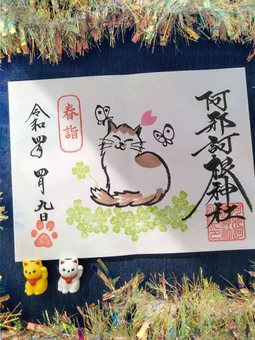 阿邪訶根神社
春詣
令和四年
四月九日